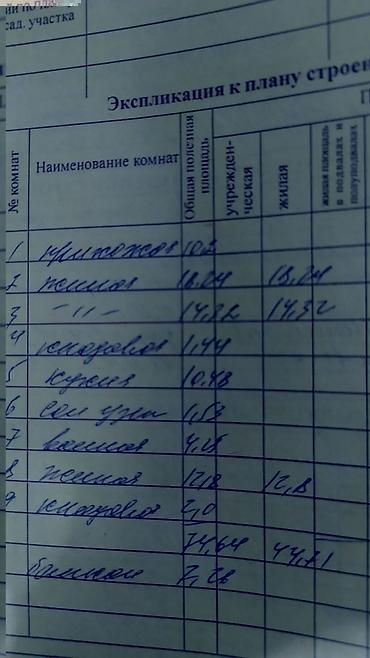 сад. участка
Экспликация к плану строен
№ комнат Наименование комнат Общая полезная площадь учрежден-ческая жилая жилая площадь в подвалах и полуподвалах
1 прихожая 10.2
2 жилая 18.04 18.04
3 -"- 14.32 14,32
4 кладовая 1,44
5 кухня 10.48
6 сан узел 1,53
7 ванная 4,25
8 жилая 12,8 12,8
9 кладовая 2,0
74,64 44,71
балкон 2,26